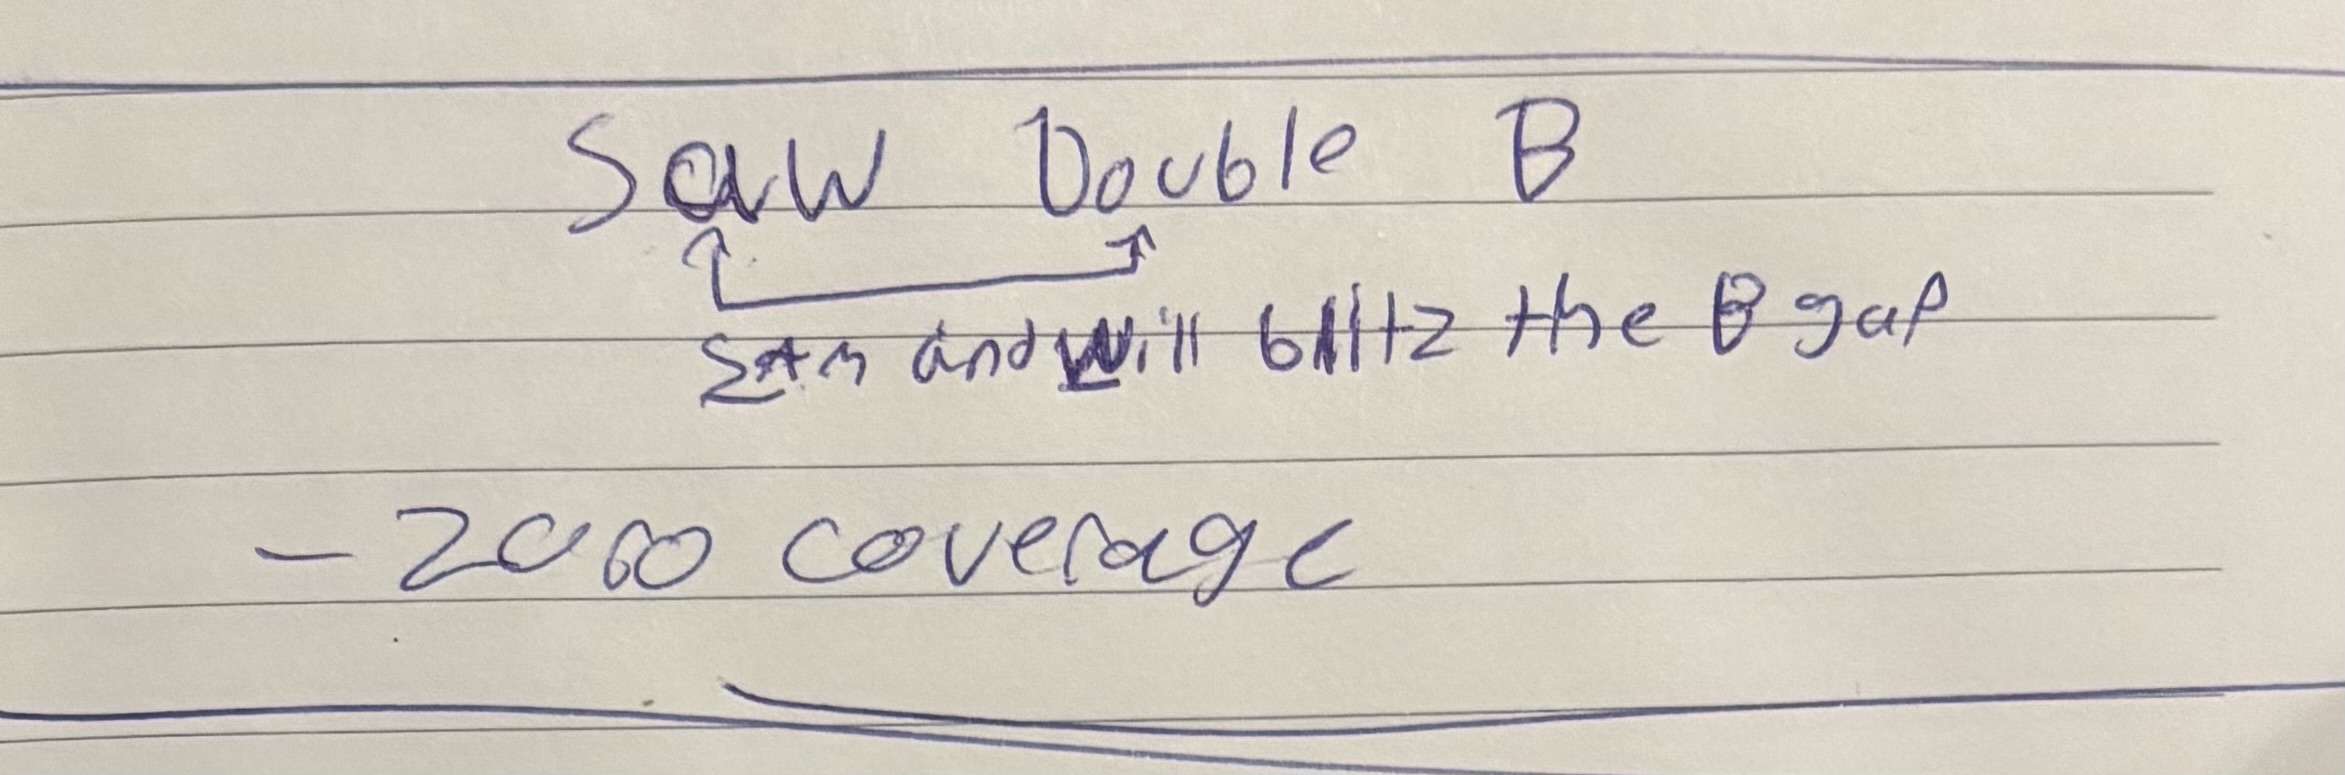 Saw Double B
Sam and Will blitz the B gap
- zone coverage